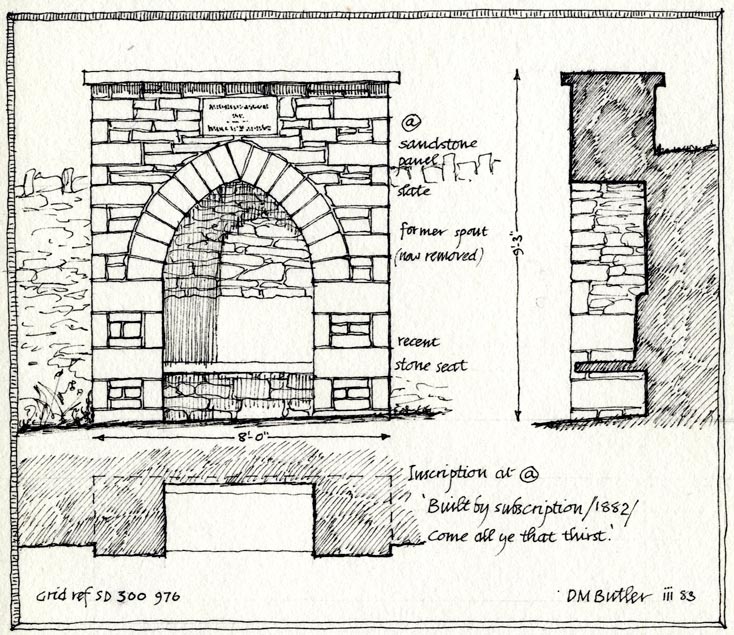 @
sandstone
panel
slate
former spout
(now removed)
recent
stone seat
9'-3"
8'-0"
Inscription at @
'Built by subscription/1882/
Come all ye that thirst.'
Grid ref SD 300 976
DMButler iii 83